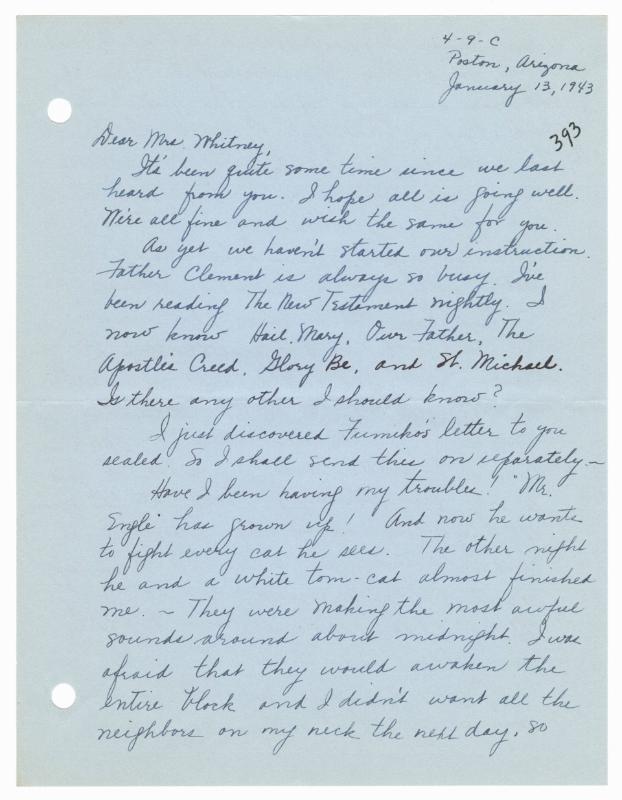 4-9-C
Poston, Arizona
January 13, 1943
393
Dear Mrs. Whitney,
It's been quite some time since we last
heard from you. I hope all is going well.
We're all fine and wish the same for you.
As yet we haven't started our instruction.
Father Clement is always so busy. I've
been reading The New Testament nightly. I
now know Hail, Mary, Our Father, The
Apostle's Creed, Glory Be, and St. Michael.
Is there any other I should know?
I just discovered Fumiko's letter to you
sealed. So I shall send this on separately —
Have I been having my troubles! "Mr.
Engli" has grown up! And now he wants
to fight every cat he sees. The other night
he and a white tom-cat almost finished
me. — They were making the most awful
sounds around about midnight. I was
afraid that they would awaken the
entire block and I didn't want all the
neighbors on my neck the next day, so